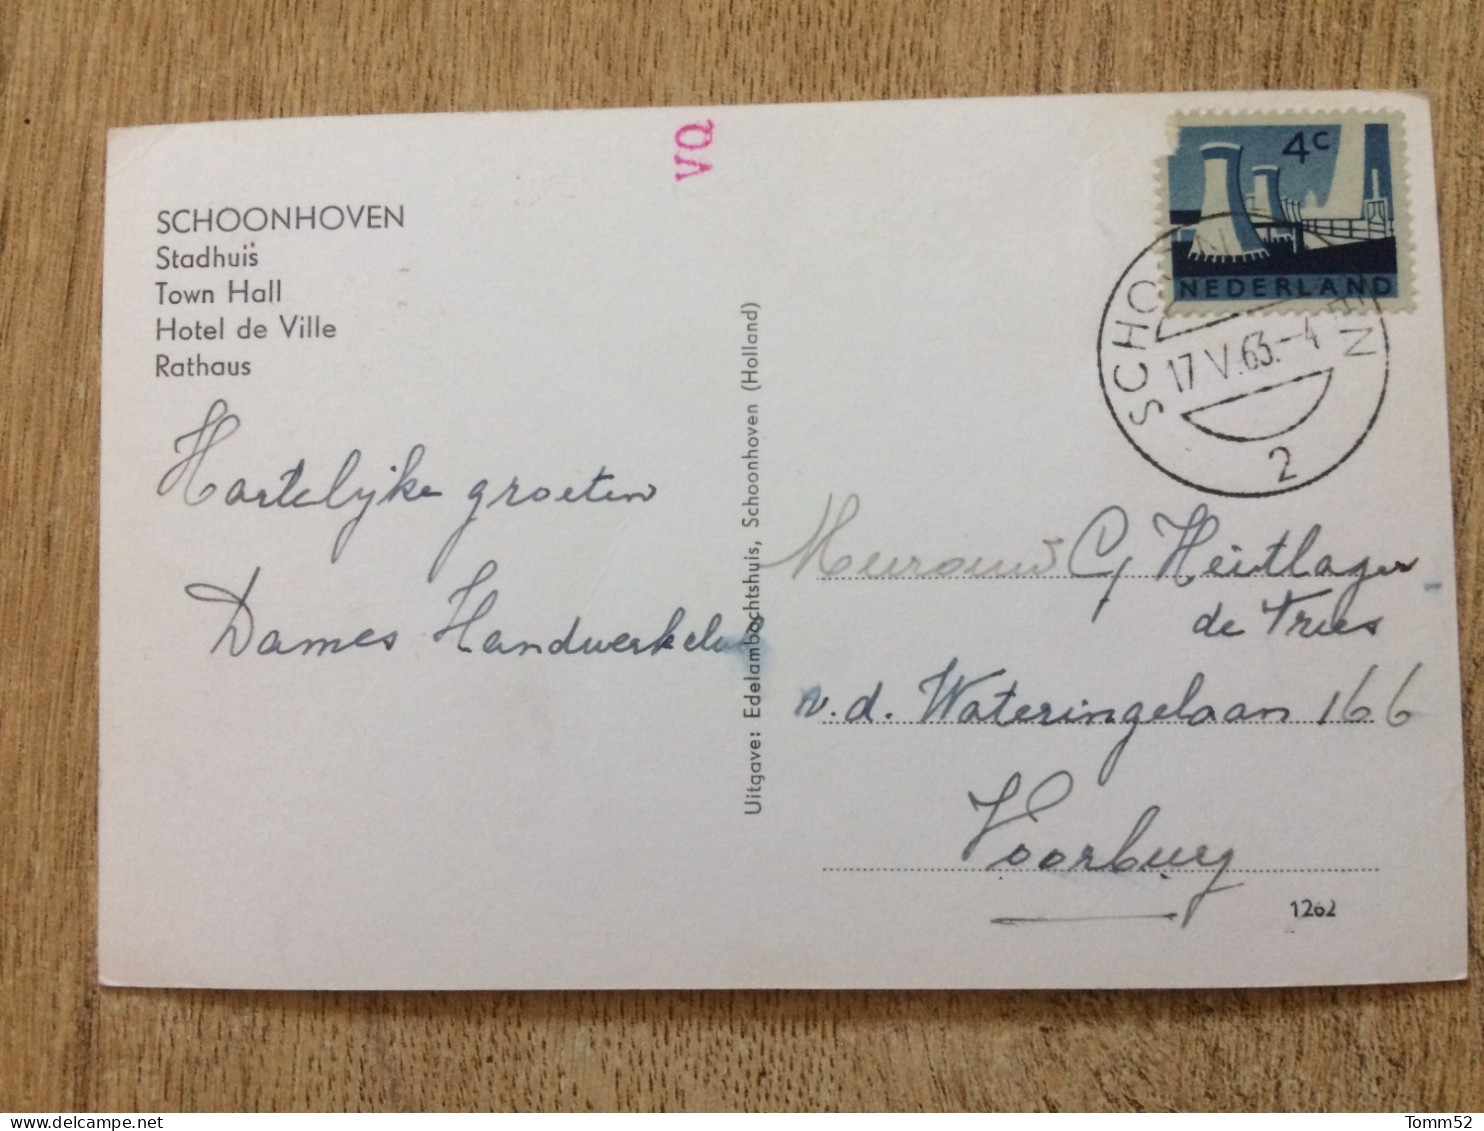 SCHOONHOVEN
Stadhuis
Town Hall
Hotel de Ville
Rathaus
Hartelijke groeten
Dames Handwerkclub
VQ
Uitgave: Edelambachtshuis, Schoonhoven (Holland)
4c
NEDERLAND
SCHOONHOVEN
17 V.63.-4
2
Mevrouw C Heitlager
de Vries
v.d. Wateringelaan 166
Voorburg
1262
Tomm52